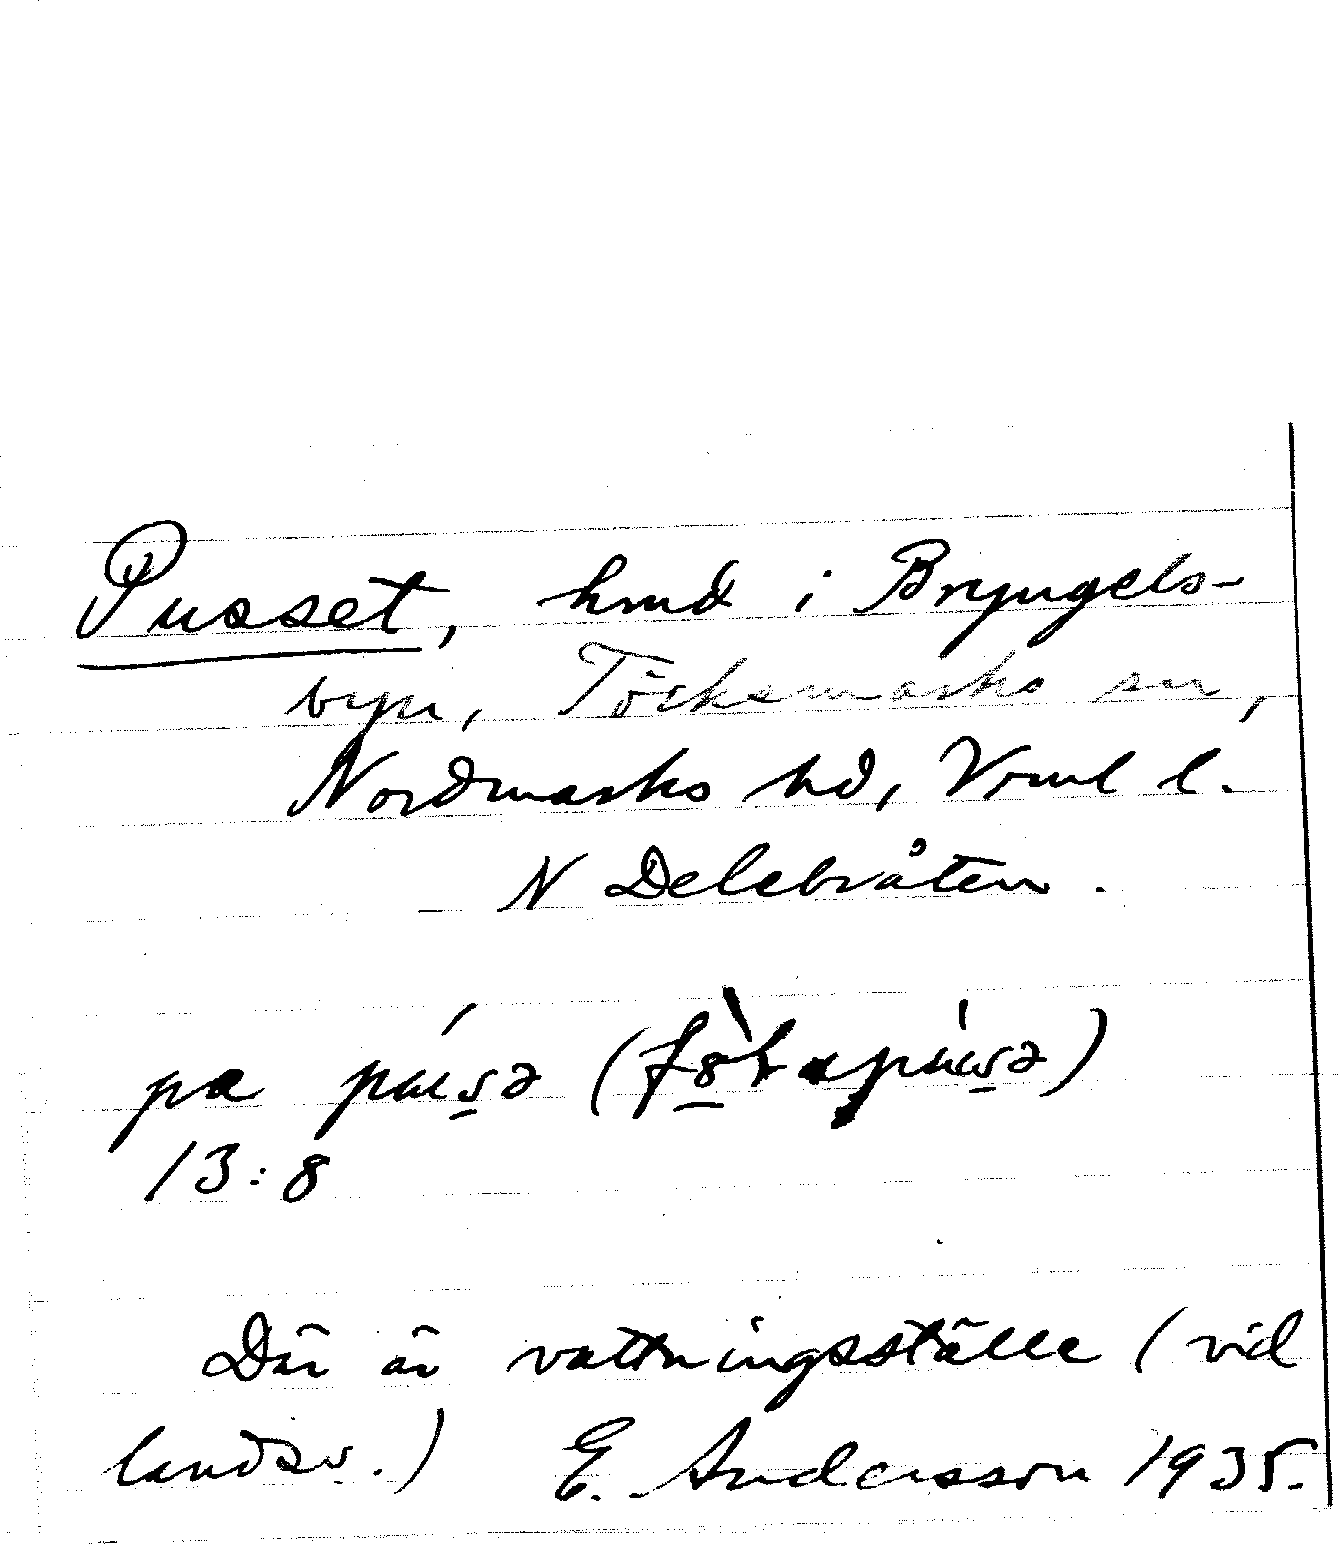 Pusset, hmd i Bryngels-
byn, Töcksmarks sn,
Nordmarks hd, Vrml l.
N Delebråten.
pa
13:8
Där är vattningsställe (vid
landsv.) E. Andersson 1935.